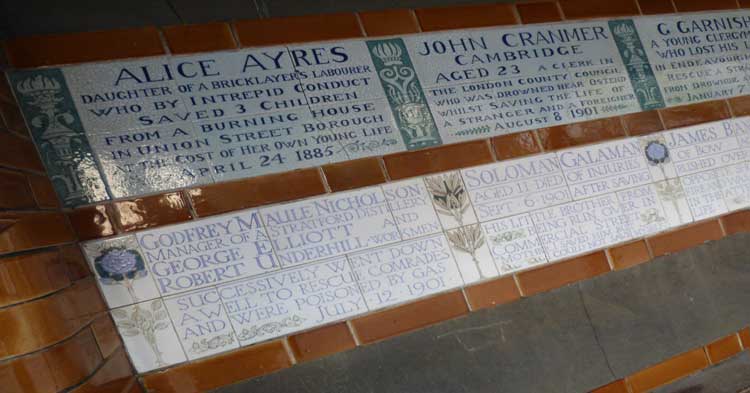 ALICE AYRES
DAUGHTER OF A BRICKLAYER'S LABOURER
WHO BY INTREPID CONDUCT
SAVED 3 CHILDREN
FROM A BURNING HOUSE
IN UNION STREET BOROUGH
AT THE COST OF HER OWN YOUNG LIFE
APRIL 24 1885
JOHN CRANMER
CAMBRIDGE
AGED 23 A CLERK IN
THE LONDON COUNTY COUNCIL
WHO WAS DROWNED NEAR OSTEND
WHILST SAVING THE LIFE OF
A STRANGER AND A FOREIGNER
AUGUST 8 1901
G GARNISH
A YOUNG CLERGYM
WHO LOST HIS
IN ENDEAVOURING
RESCUE A STR
FROM DROWN
JANUARY 7
GODFREY MAULE NICHOLSON
MANAGER OF A STRATFORD DISTILLERY
GEORGE ELLIOTT AND
ROBERT UNDERHILL WORKMEN
SUCCESSIVELY WENT DOWN
A WELL TO RESCUE COMRADES
AND WERE POISONED BY GAS
JULY 12 1901
SOLOMAN GALAMAN
AGED 11 DIED OF INJURIES
SEPT 6 1901 AFTER SAVING
HIS LITTLE BROTHER FROM
BEING RUN OVER IN
COMMERCIAL STREET
JAMES BA
OF BOW